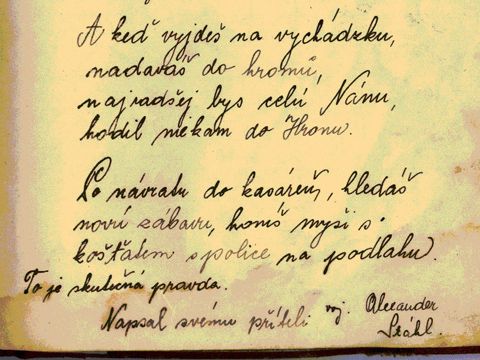 A keď vyjdeš na vychádzku,
nadavaš do hromů,
najradšej bys celú Nánu,
hodil někam do Hronu.
Po návratu do kasáreň, hledáš
noví zábavu, honiš myši s
košťátem s police na podlahu.
To je skutečná pravda.
Napsal svému příteli voj. Alexander
Stáhl.